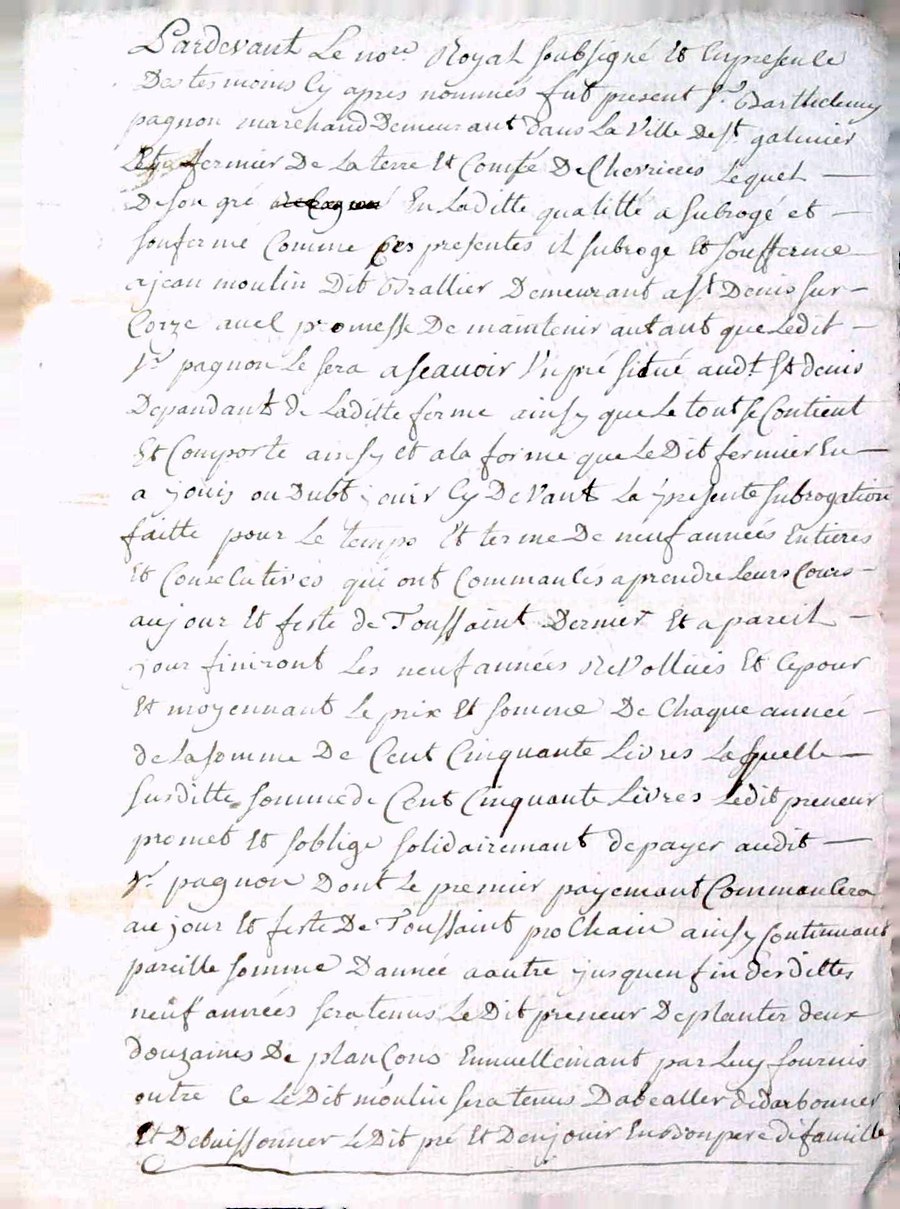 Pardevant Le nore Royal soubsigné Et Enpresence
Des tesmoins Cy apres nommés fut present Sr. Barthelemy
pagnon marchand Demeurant dans La Ville De St. galmier
fermier De La terre Et Comté De Chevrieres Lequel
De son gré En Laditte qualitté a subrogé et
sonfermé Comme Ces presentes il subroge Et soufferme
a jean moulin Dit Brallier Demeurant a St. Denis sur
Coize avec promesse De maintenir autant que Ledit
Sr. pagnon Le sera a scavoir Un pré situé audt. St denis
Depandant de Laditte ferme ainsy que Le tout se Contient
Et Comporte ainsy et a la forme que Le Dit fermier En
a jouis ou Dubt jouir Cy Devant La presente subrogation
faitte pour Le temps Et terme De neuf années Entieres
Et Consecutives qui ont Commancés a prendre Leurs Cours
au jour Et feste de Toussaint Dernier Et a pareil
jour finiront Les neuf années Revollües Et Ce pour
Et moyennant Le prix Et somme De Chaque année
de La somme De Cent Cinquante Livres Laquelle
susditte somme de Cent Cinquante Livres Ledit preneur
promet Et soblige solidairemant de payer audit
Sr. pagnon Dont Le premier payemant Commancera
au jour Et feste De Toussaint prochain ainsy Continuant
pareille somme Dannée a autre jusquen fin desdittes
neuf années sera tenus Le Dit preneur De planter deux
douzaines De plançons Ennuellemant par Luy fournis
outre Ce Le Dit moulin sera tenus Dabealler dedarbonner
Et Debuissonner Le Dit pré Et Denjouir En bon pere de famille